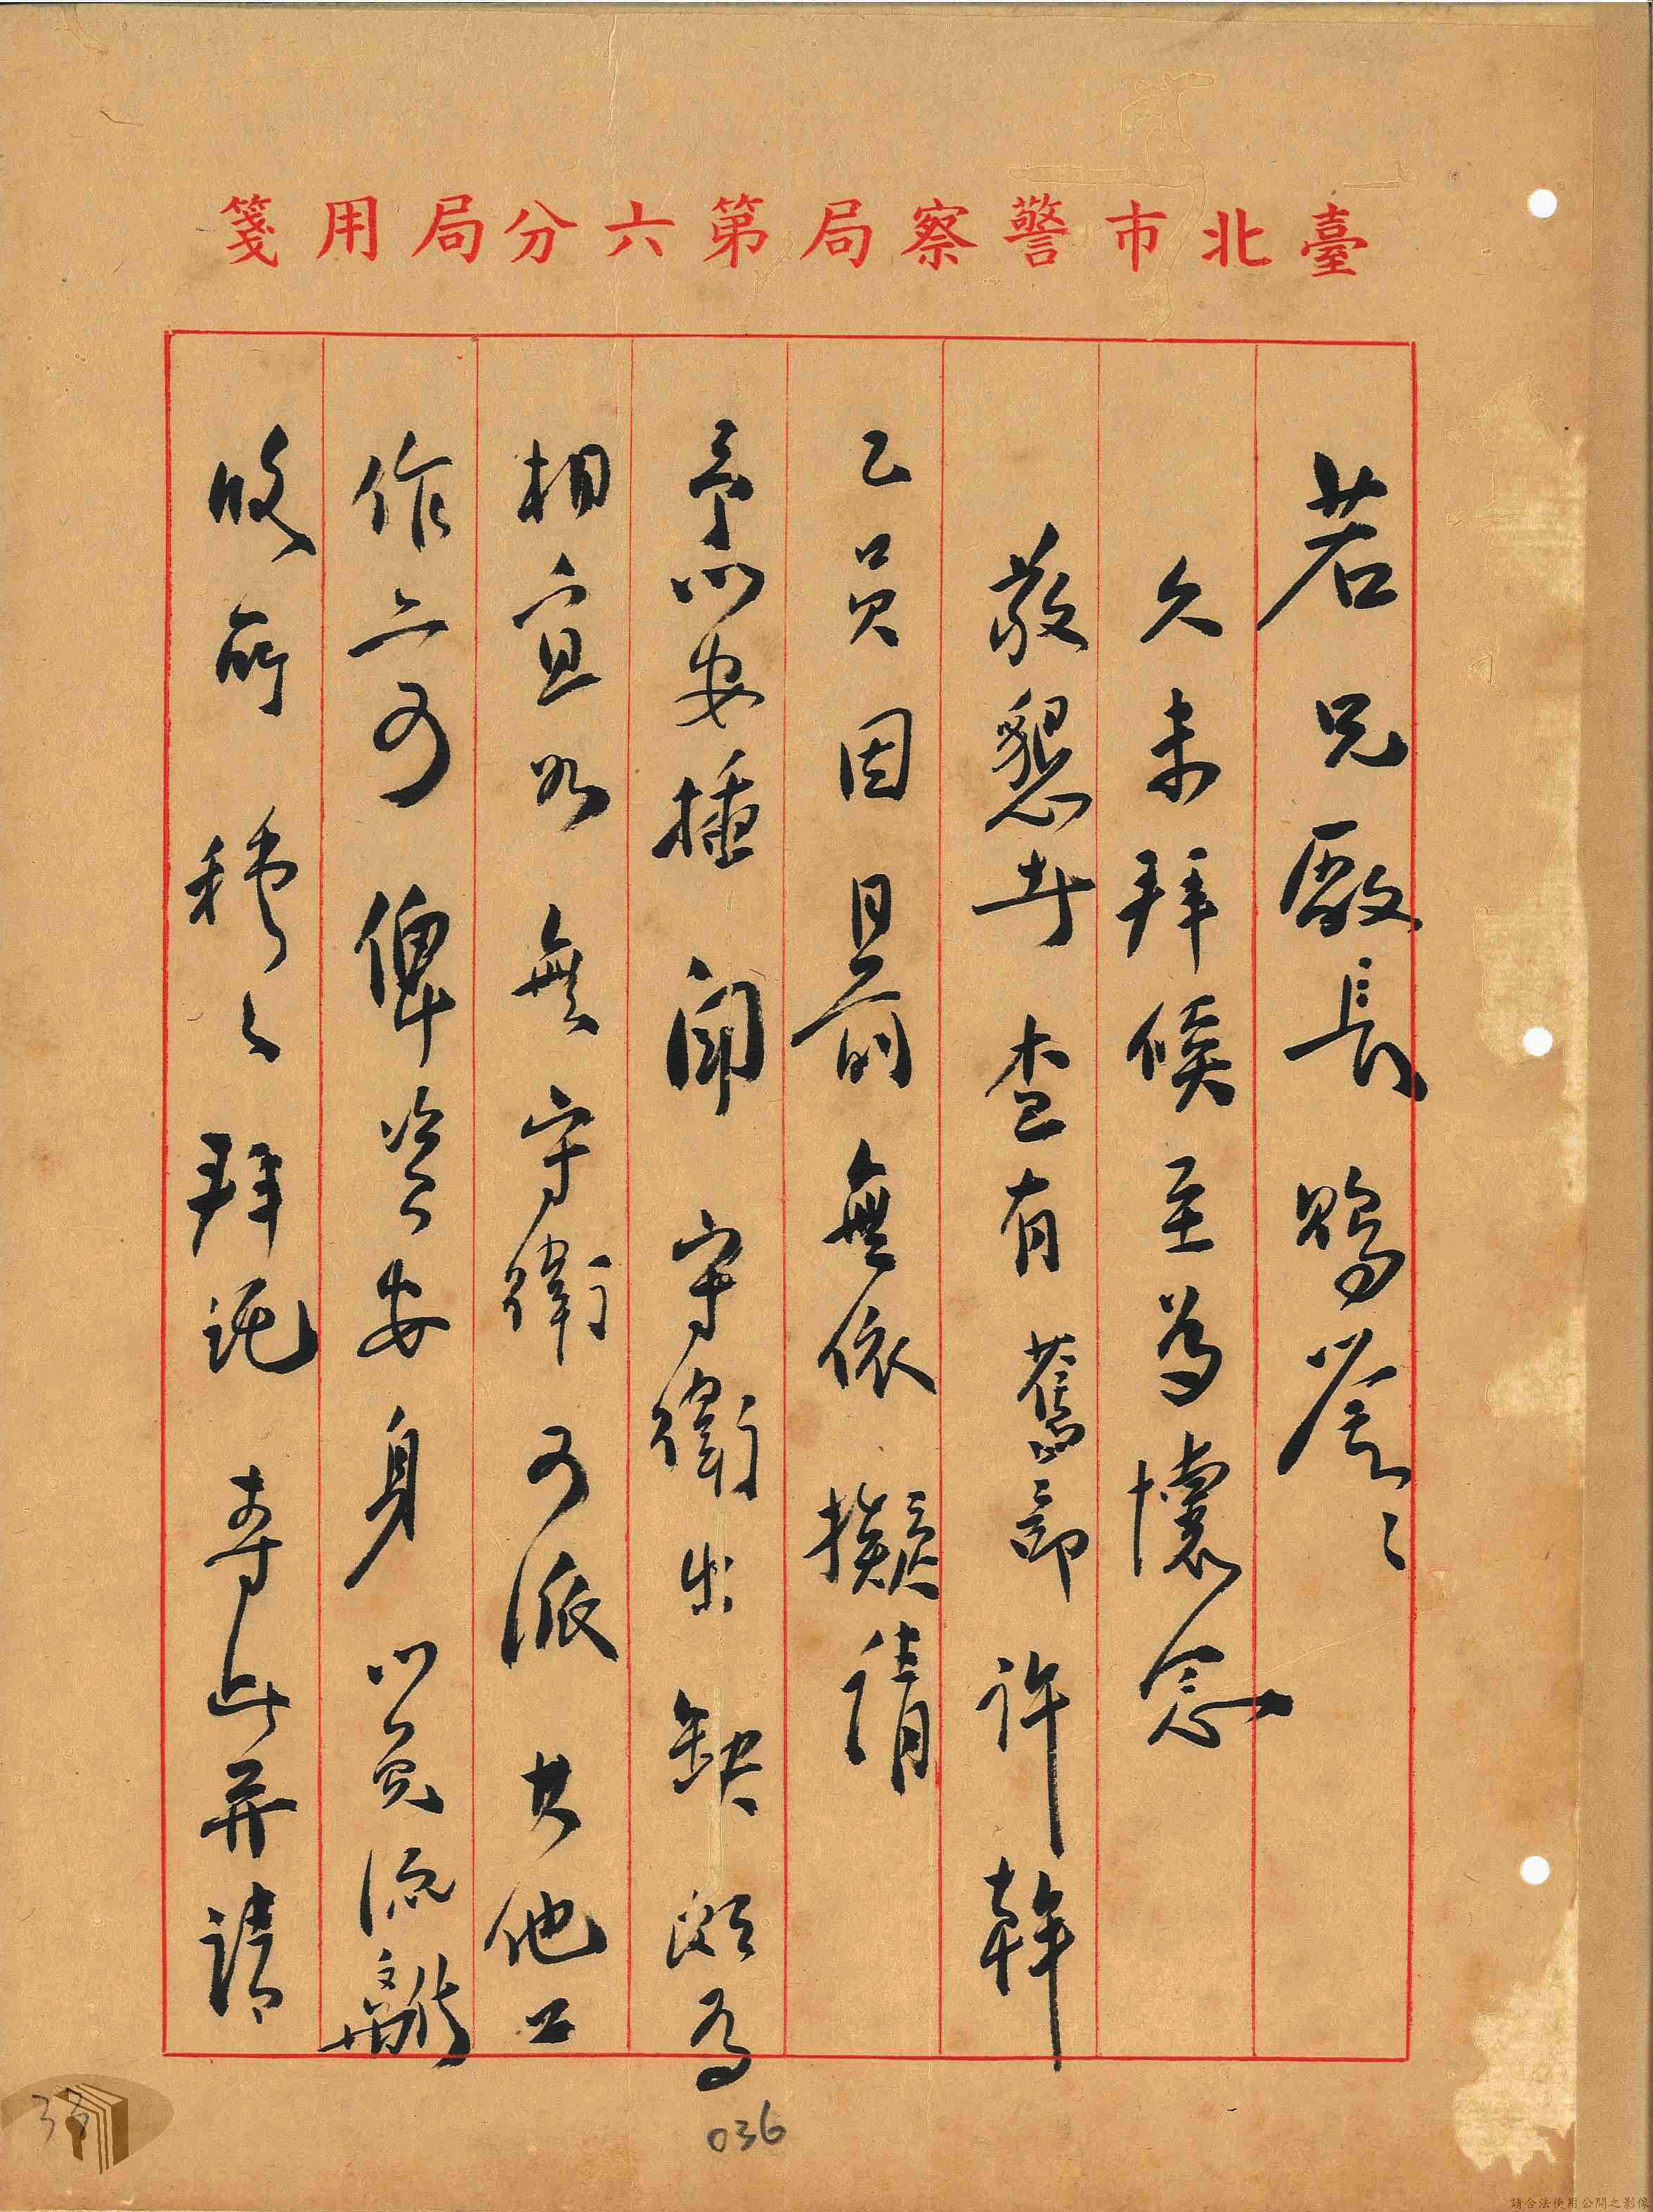 臺北市警察局第六分局用箋
若兄廠長賜鑒：
久未拜候至為懷念
敬懇者查有舊部許幹
乙員因目前無依擬請
予以安插聞守衛出缺頗為
相宜如無守衛可派其他工
作亦可俾資安身以免流離
失所種々拜託專此並請
036
請合法使用公開之影像